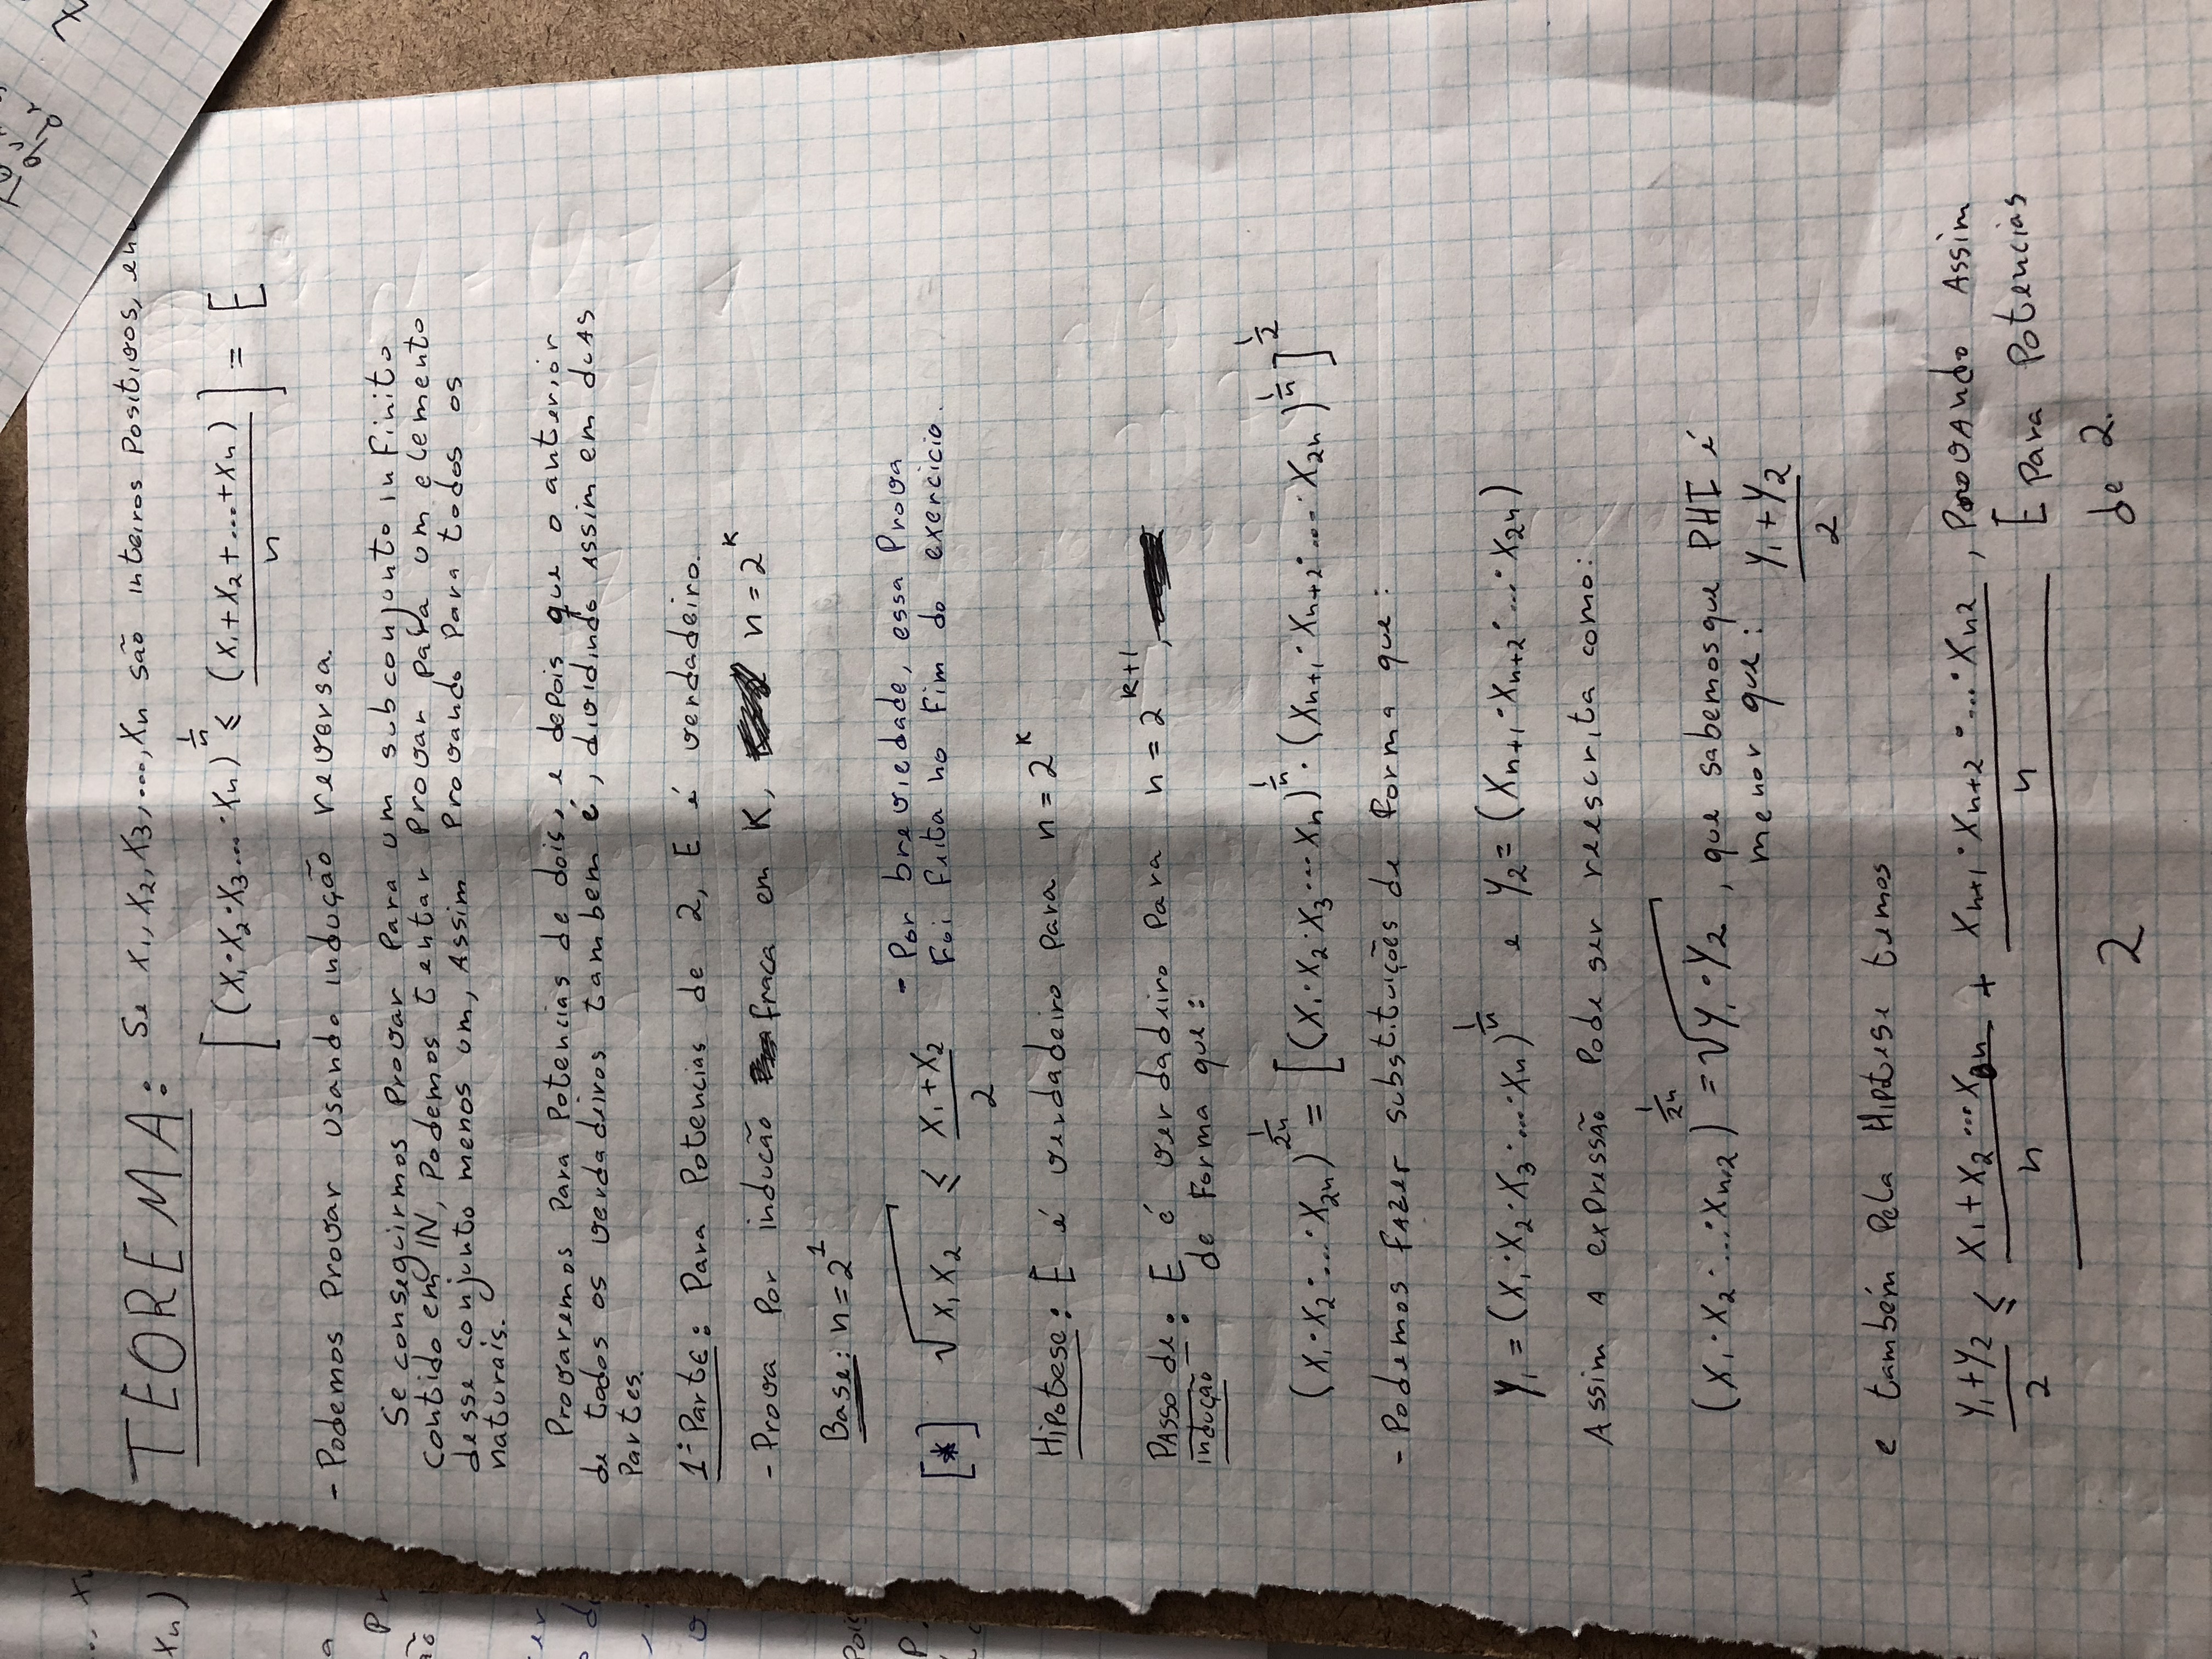 TEOREMA: Se x₁, x₂, x₃, ..., xₙ são inteiros positivos,
[(x₁·x₂·x₃...·xₙ)^(1/n) ≤ (x₁+x₂+...+xₙ)/n] = E
- Podemos Provar usando indução reversa.
Se conseguirmos Provar Para um subconjunto infinito
contido em IN, Podemos tentar Provar para um elemento
desse conjunto menos um, Assim Provando Para todos os
naturais.
Provaremos Para Potencias de dois, e depois que o anterior
de todos os verdadeiros tambem é, dividindo Assim em duas
Partes.
1ª Parte: Para Potencias de 2, E é verdadeiro.
- Prova Por indução fraca em K, n = 2^K
Base: n = 2^1
[*] √(x₁x₂) ≤ (x₁+x₂)/2 - Por breviedade, essa Prova
Foi feita no Fim do exercicio.
Hipotese: E é verdadeiro Para n = 2^K
Passo de indução: E é verdadeiro Para n = 2^(K+1),
de Forma que:
(x₁·x₂·...·x₂ₙ)^(1/2n) = [(x₁·x₂·x₃...xₙ)^(1/n) · (xₙ₊₁·xₙ₊₂·...·x₂ₙ)^(1/n)]^(1/2)
- Podemos fazer substituições de Forma que:
y₁ = (x₁·x₂·x₃·...·xₙ)^(1/n) e y₂ = (xₙ₊₁·xₙ₊₂·...·x₂ₙ)
Assim A expressão Pode ser reescrita como:
(x₁·x₂·...·xₙ.₂)^(1/2n) = √(y₁·y₂), que sabemos que PHI é
menor que: (y₁+y₂)/2
e também Pela Hiptese temos
(y₁+y₂)/2 ≤ ((x₁+x₂...xₙ)/n + (xₙ₊₁·xₙ₊₂·...·xₙ₂)/n)/2, Provando Assim
E Para Potencias
de 2.